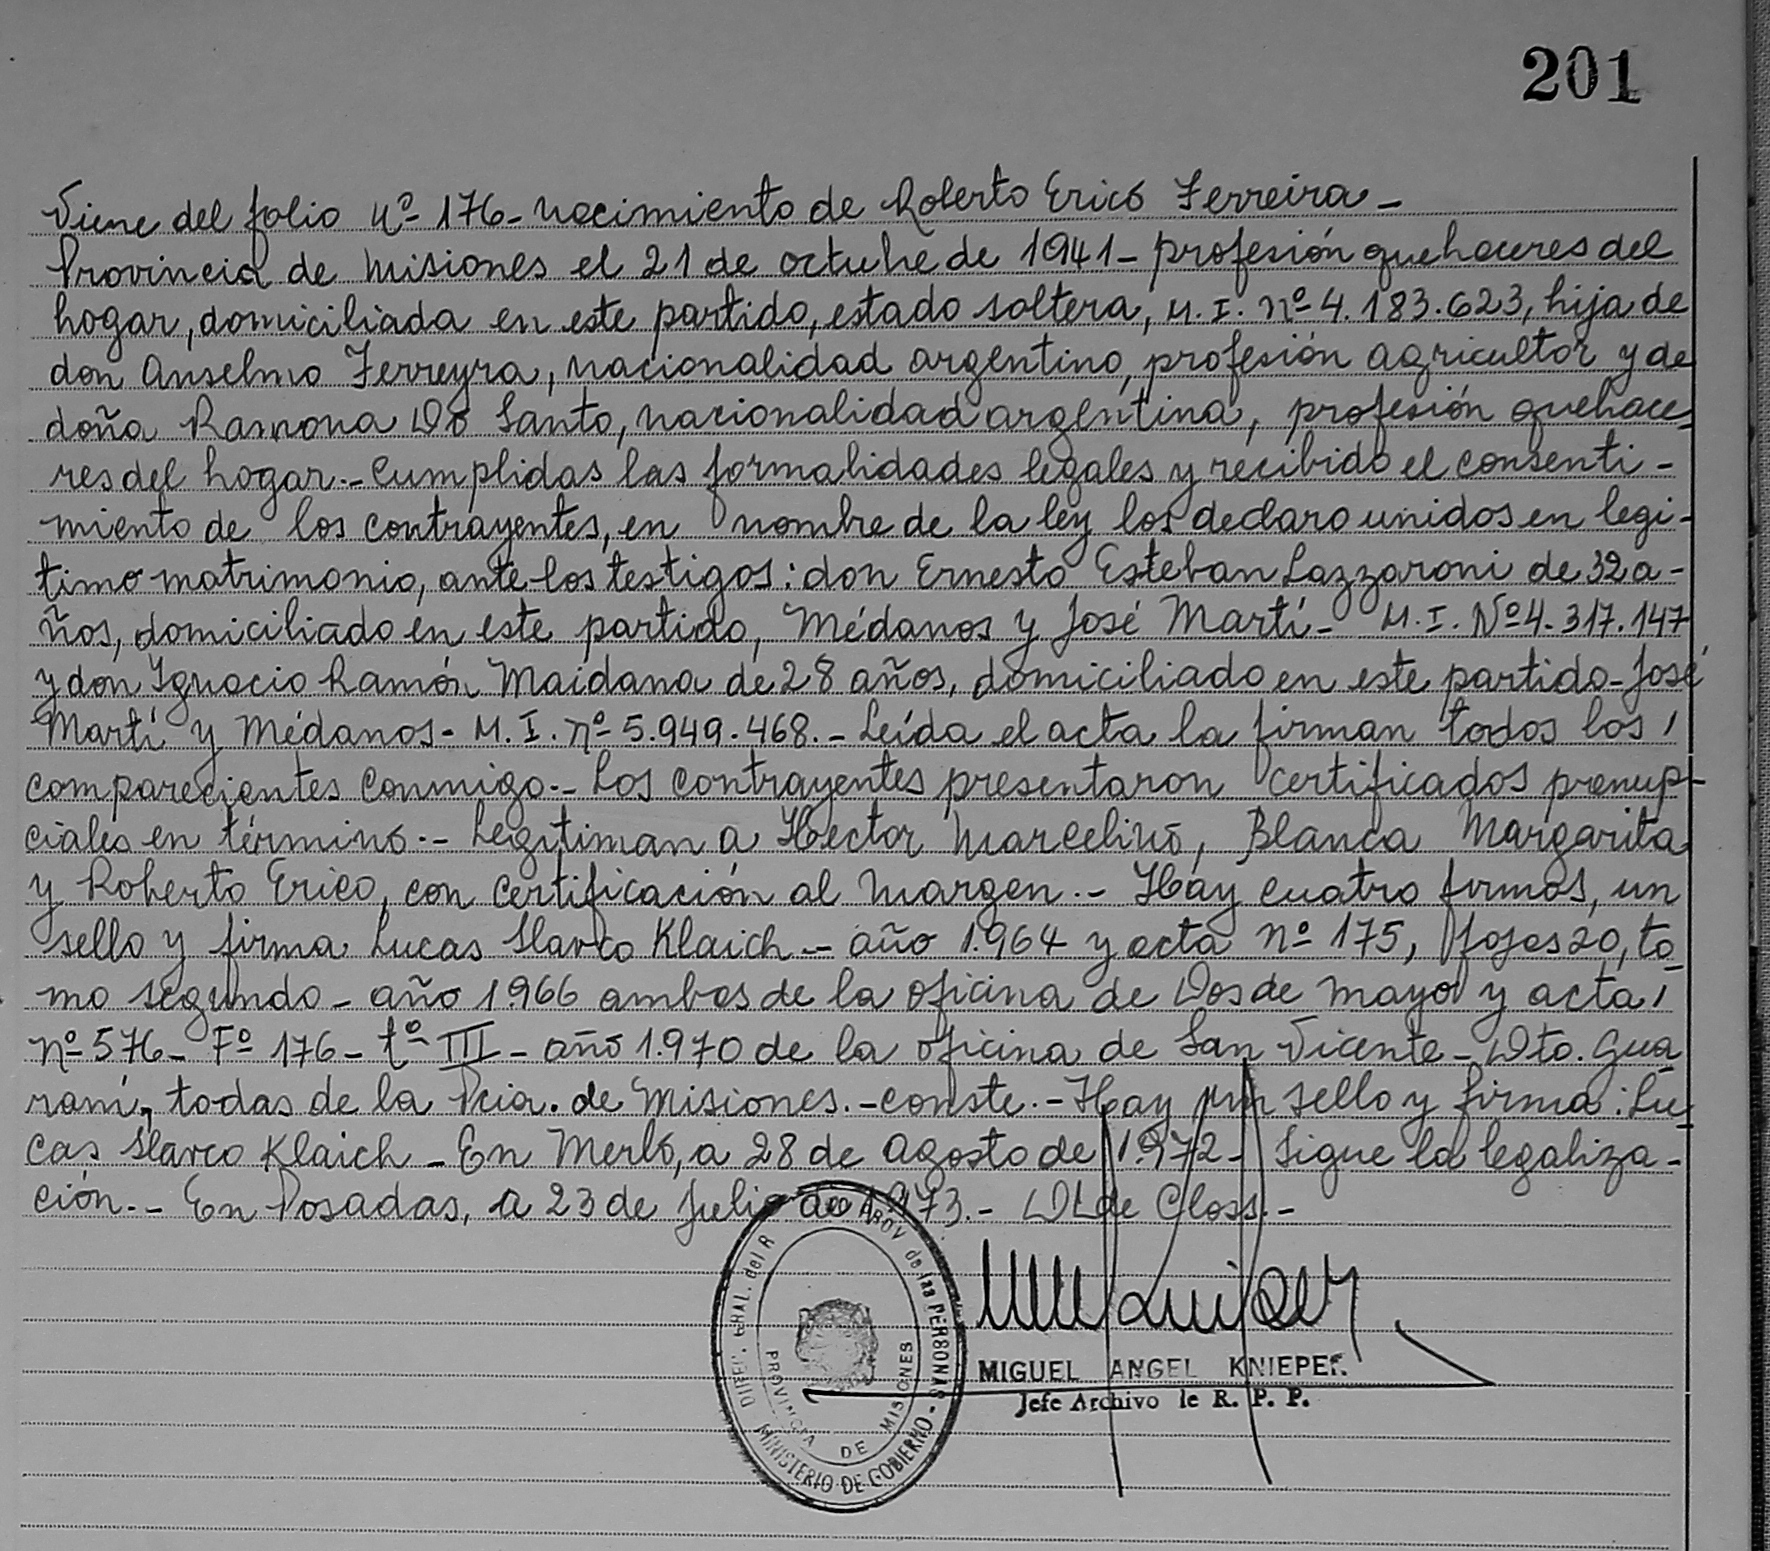 201
Viene del folio nº 176 - nacimiento de Roberto Erico Ferreira -
Provincia de Misiones el 21 de octubre de 1941 - profesión quehaceres del
hogar, domiciliada en este partido, estado soltera, M. I. nº 4.183.623, hija de
don Anselmo Ferreyra, nacionalidad argentino, profesión agricultor y de
doña Ramona Do Santo, nacionalidad argentina, profesión quehace-
res del hogar.- Cumplidas las formalidades legales y recibido el consenti-
miento de los contrayentes, en nombre de la ley los declaro unidos en legi-
timo matrimonio, ante los testigos: don Ernesto Esteban Lazzaroni de 32 a-
ños, domiciliado en este partido, Médanos y José Martí - M. I. Nº 4.317.147
y don Ignacio Ramón Maidana de 28 años, domiciliado en este partido - José
Martí y Médanos - M. I. nº 5.949.468.- Leída el acta la firman todos los /
comparecientes conmigo.- Los contrayentes presentaron certificados prenup-
ciales en término.- Legitiman a Hector Marcelino, Blanca Margarita
y Roberto Erico, con certificación al margen.- Hay cuatro firmas, un
sello y firma Lucas Slavco Klaich - año 1.964 y acta nº 175, fojas 20, to-
mo segundo - año 1966 ambas de la oficina de Dos de Mayo y acta /
nº 576 - Fº 176 - tº III - año 1.970 de la oficina de San Vicente - Dto. Gua
raní, todas de la Pcia. de Misiones.- conste.- Hay un sello y firma: Lu-
cas Slavco Klaich - En Merlo, a 28 de Agosto de 1.972 - Sigue la legaliza-
ción.- En Posadas, a 23 de Julio de 1973.- de Closs.-
DIREC. GRAL. del R PROV de las PERSONAS - MINISTERIO DE GOBIERNO -
PROVINCIA DE MISIONES
MIGUEL ANGEL KNIEPER
Jefe Archivo de R. P. P.